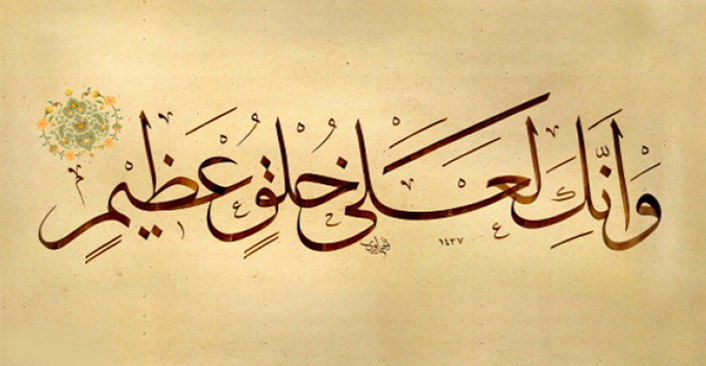 وَاِنَّكَ لَعَلى خُلُقٍ عَظيمٍ
١٤٢٧